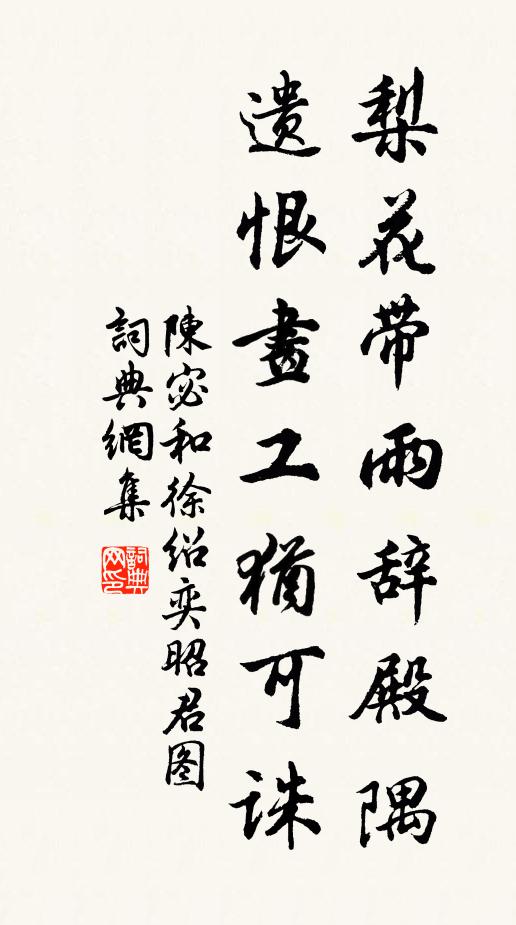 梨花带雨辞殿隅
遗恨畫工猶可诛
陳宓和徐绍奕昭君图
詞典網集
詞典网印